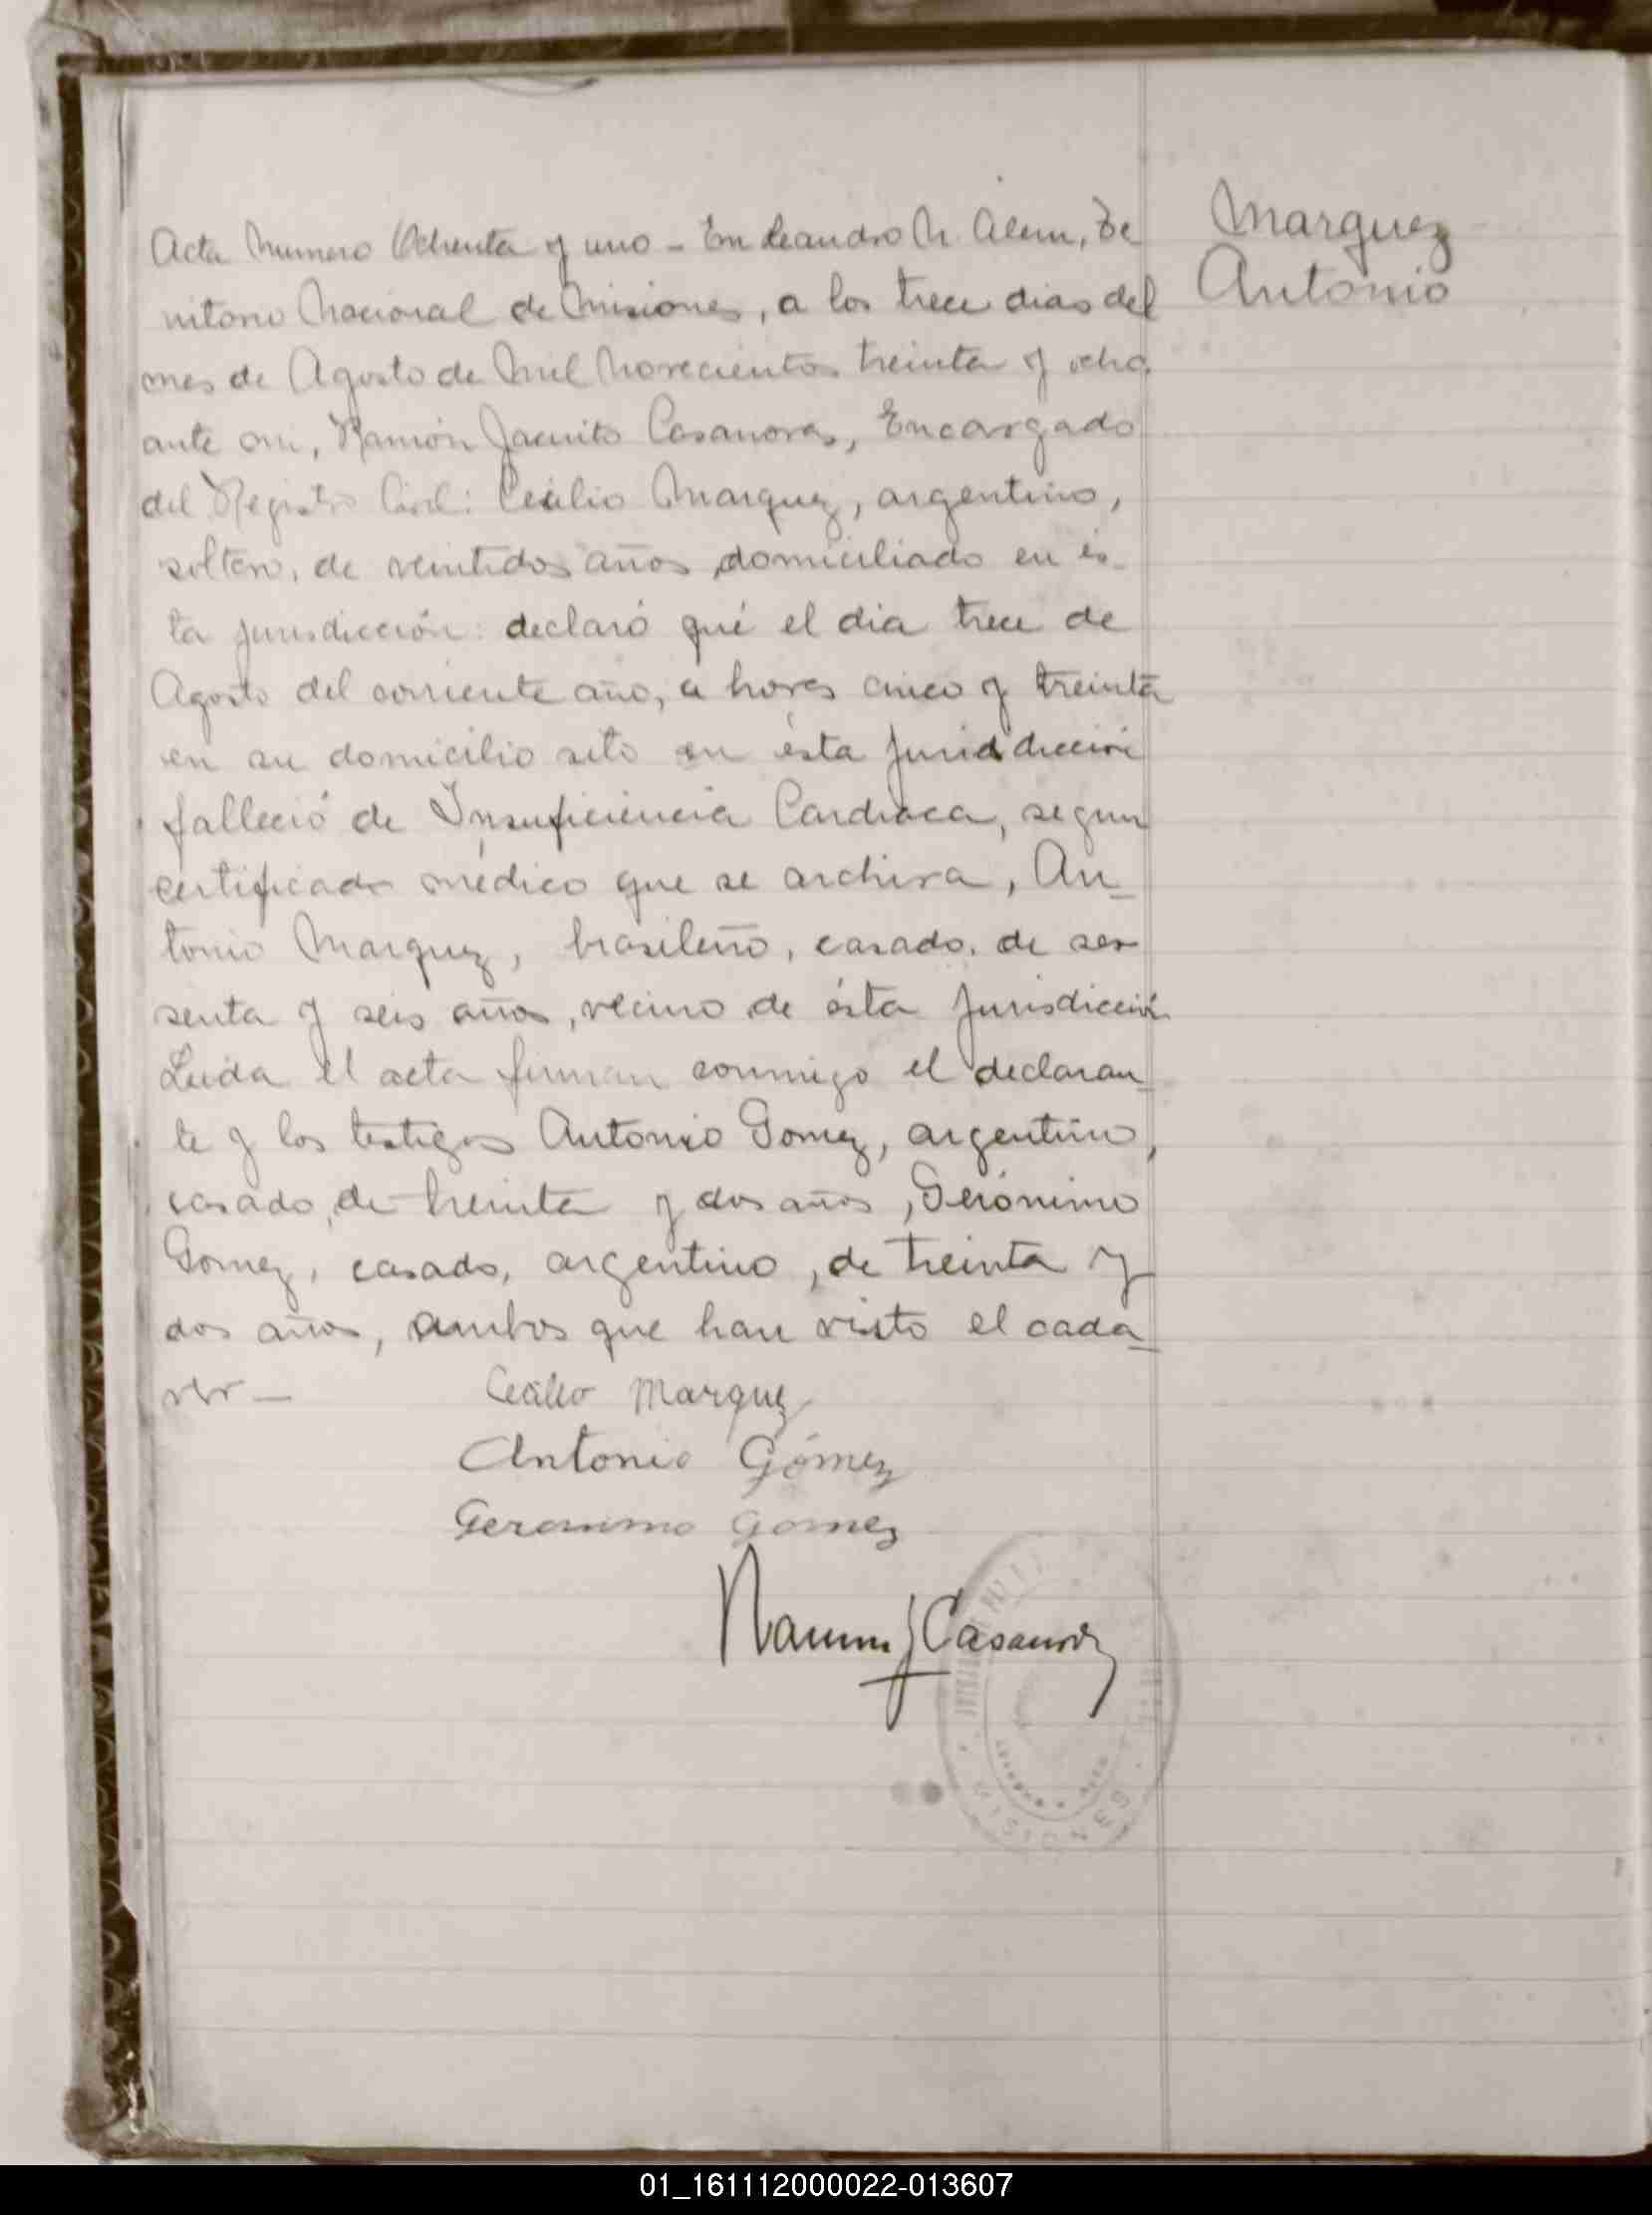 Marquez
Antonio
Acta Numero Ochenta y uno - En Leandro N. Alem, Te
rritorio Nacional de Misiones, a los trece dias del
mes de Agosto de Mil Novecientos treinta y ocho
ante mi, Ramón Jacinto Casanovas, Encargado
del Registro Civil: Cecilio Marquez, argentino,
soltero, de veintidos años, domiciliado en és-
ta jurisdicción: declaró qué el dia trece de
Agosto del corriente año, a horas cinco y treinta
en su domicilio sito en ésta juriddicción
falleció de Insuficiencia Cardiaca, segun
certificado médico que se archiva, An_
tonio Marquez, brasileño, casado, de ses
senta y seis años, vecino de ésta jurisdicción
Leida el acta firman conmigo el declaran_
te y los testigos Antonio Gomez, argentino,
casado, de treinta y dos años, Gerónimo
Gomez, casado, argentino, de treinta y
dos años, ambos que han visto el cada_
ver —
Cecilio Marquez
Antonio Gómez
Geronimo Gomez
Ramon J Casanovas
MISIONES
01_161112000022-013607